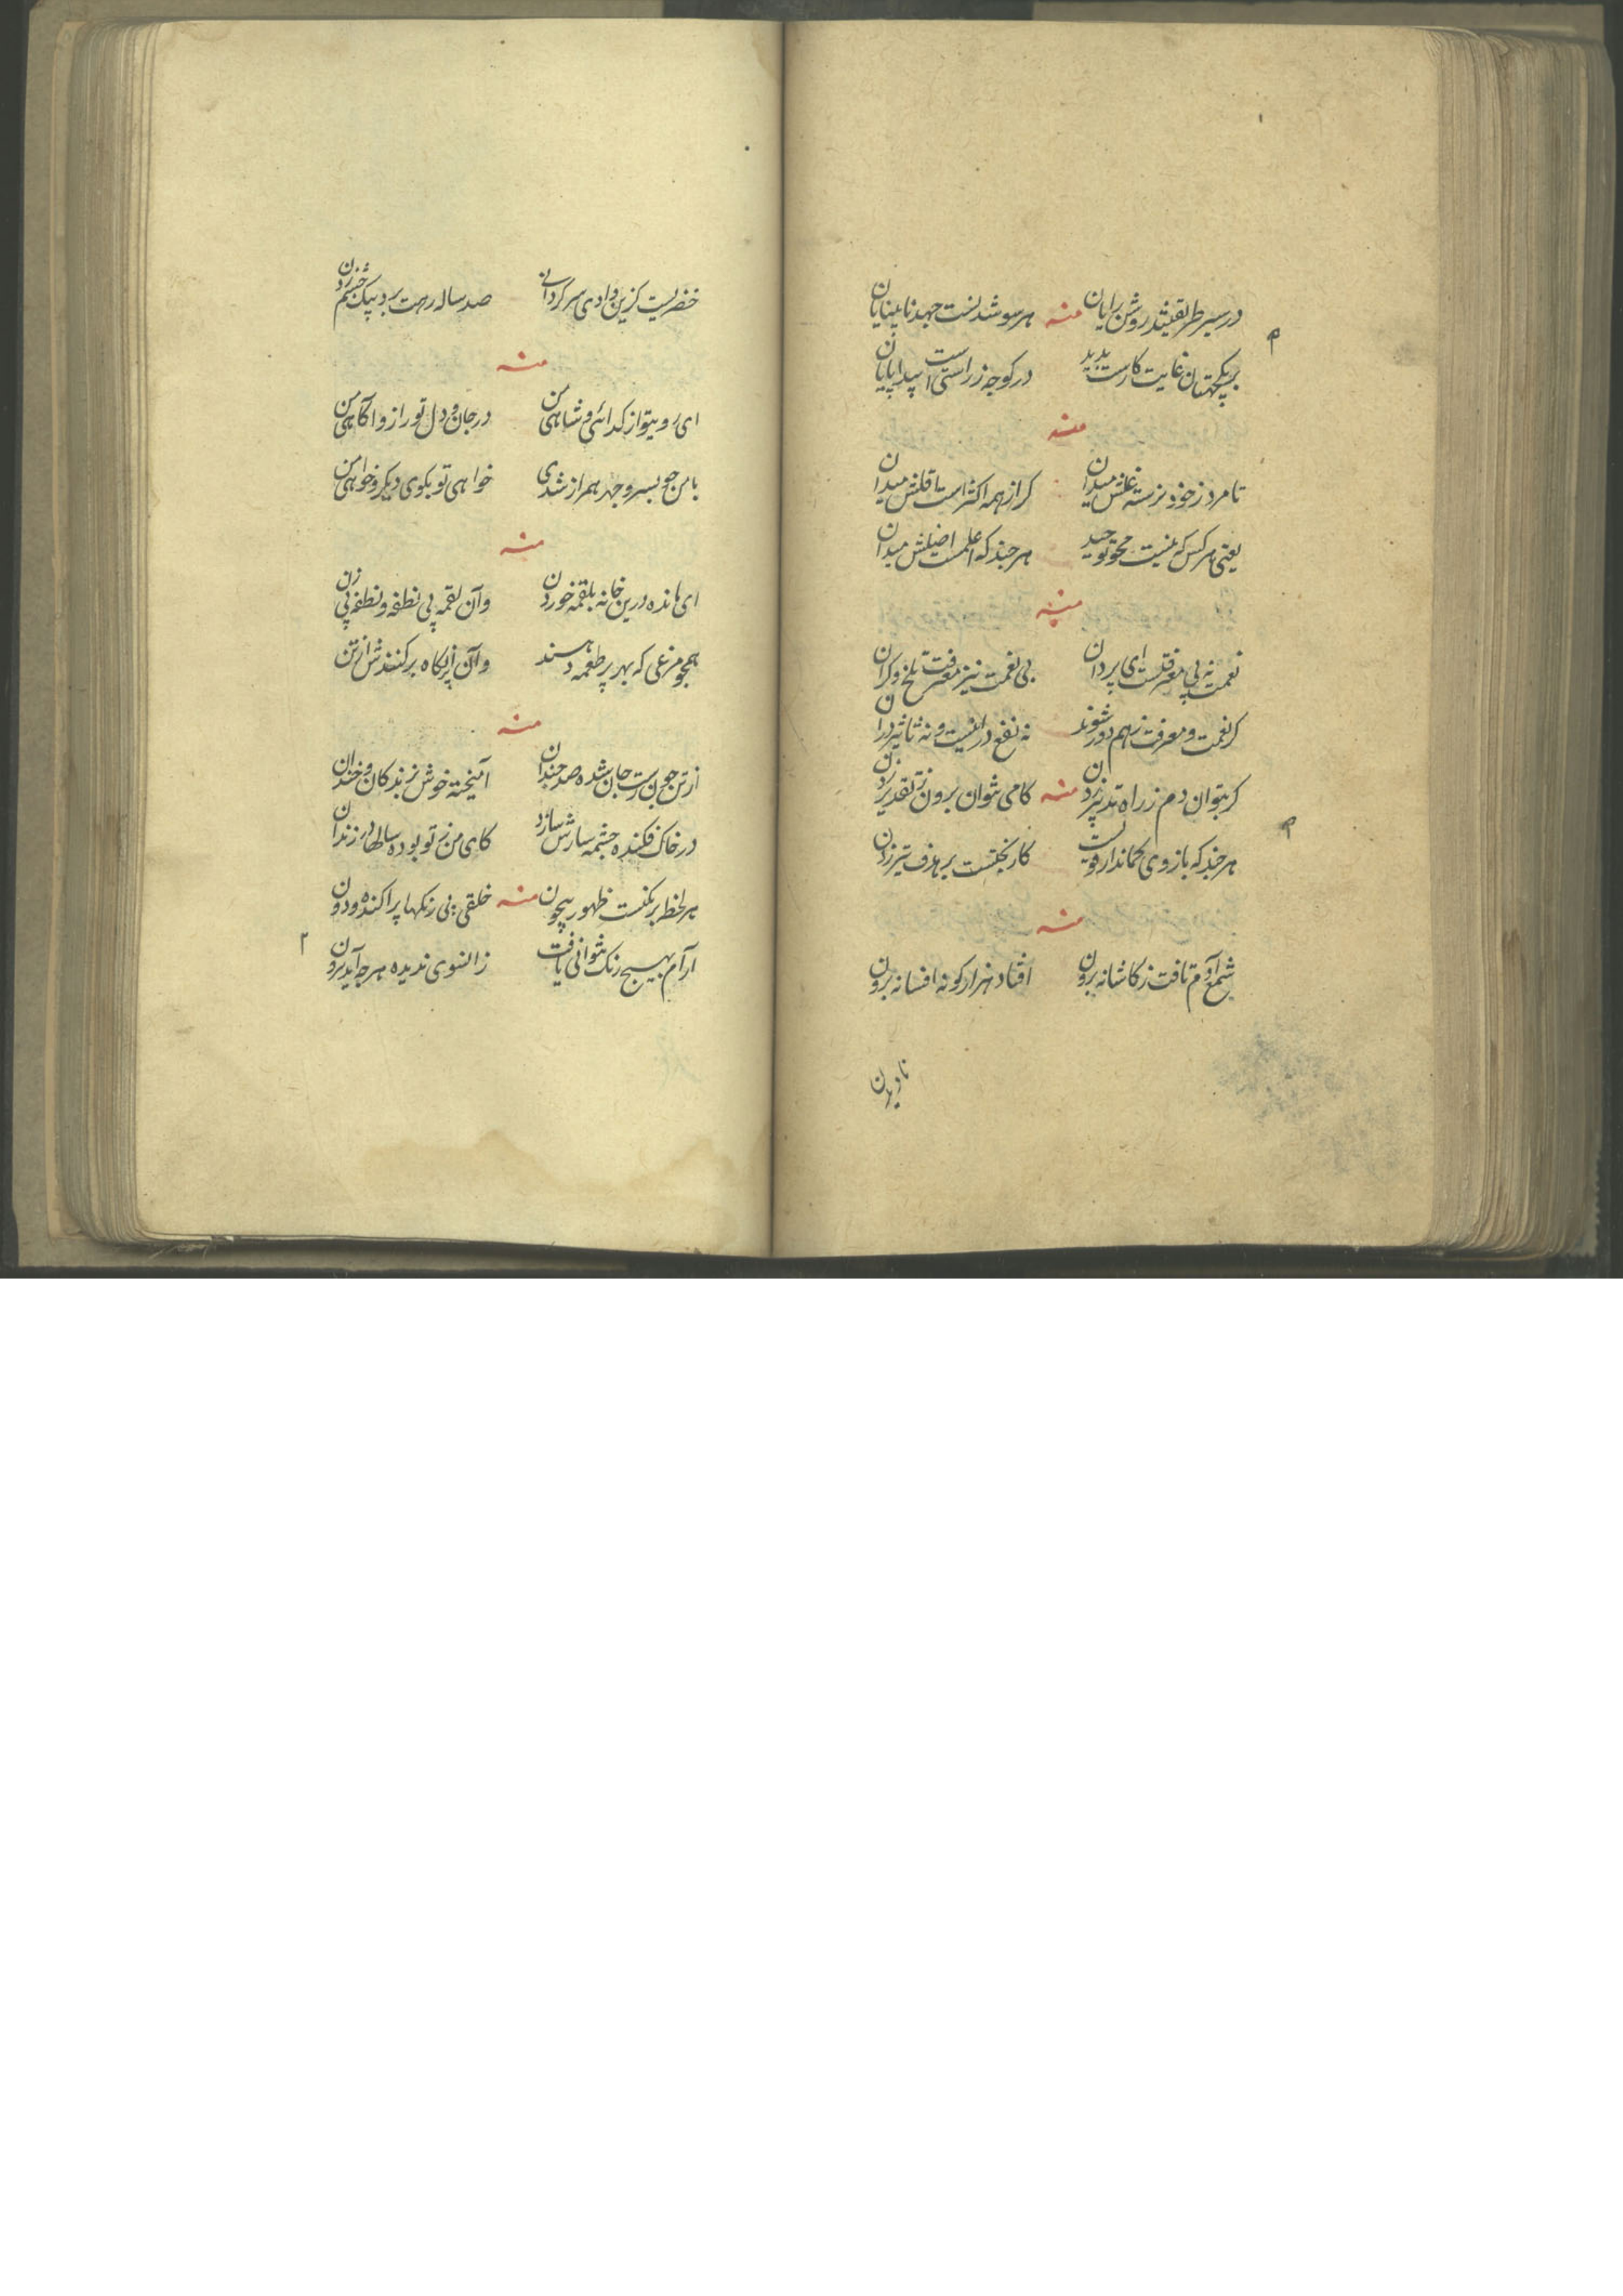 در سیر طریقتند روشن رایان منه هر سو شدنست جهد نابینایان
بر یکجهتان غایت کارست پدید در کوچه ز راستی است پیدا پایان
منه
تا مرد ز خود نرسته غلش میدان کر از همه اکثر است تا قلش میدان
یعنی هر کس که نیست محو توحید هر چند که اعلمست اضلش میدان
منه
نعمت نه بی معرفتست ای پردان بی نعمت نیز معرفت تلخ و کران
کر نعمت و معرفت ز هم دور شوند نه نفع در اینست و نه تاثیر در ان
کر بتوان دم ز راه تدبیر زدن منه کامی نتوان برون ز تقدیر زدن
هر چند که بازوی کماندار قویست کار بختست بر هدف تیر زدن
منه
شمع آدم تافت ز کاشانه برون افتاد هزار کونه افسانه برون
خضریست کزین وادی سرکردانی صد ساله رهت برد بیک چشم زدن
منه
ای روی تو از کدائی و شاهی من در جان و دل تو راز و آکاهی من
با من چو بسر و جهر همراز شدی خواهی تو بکوی دیکر و خواهی من
منه
ای مانده درین خانه بلقمه خوردن وآن لقمه پی نطفه و نطفه پی زن
همچو مرغی که بهر پر طعمه دهند وآن پر ناکاه بر کنندش از تن
منه
از تن چون رست جان شده صد چندان آمیخته خوش بزندکان و خندان
در خاک فکنده چشمه سارش سازد کای من ز تو بوده سالها در زندان
هر لحظه برنکیست ظهور بیچون منه خلقی پی رنکها پراکنده و دون
آرام بهیچ رنک نتوانی یافت زانسوی ندیده هر چه آید برون